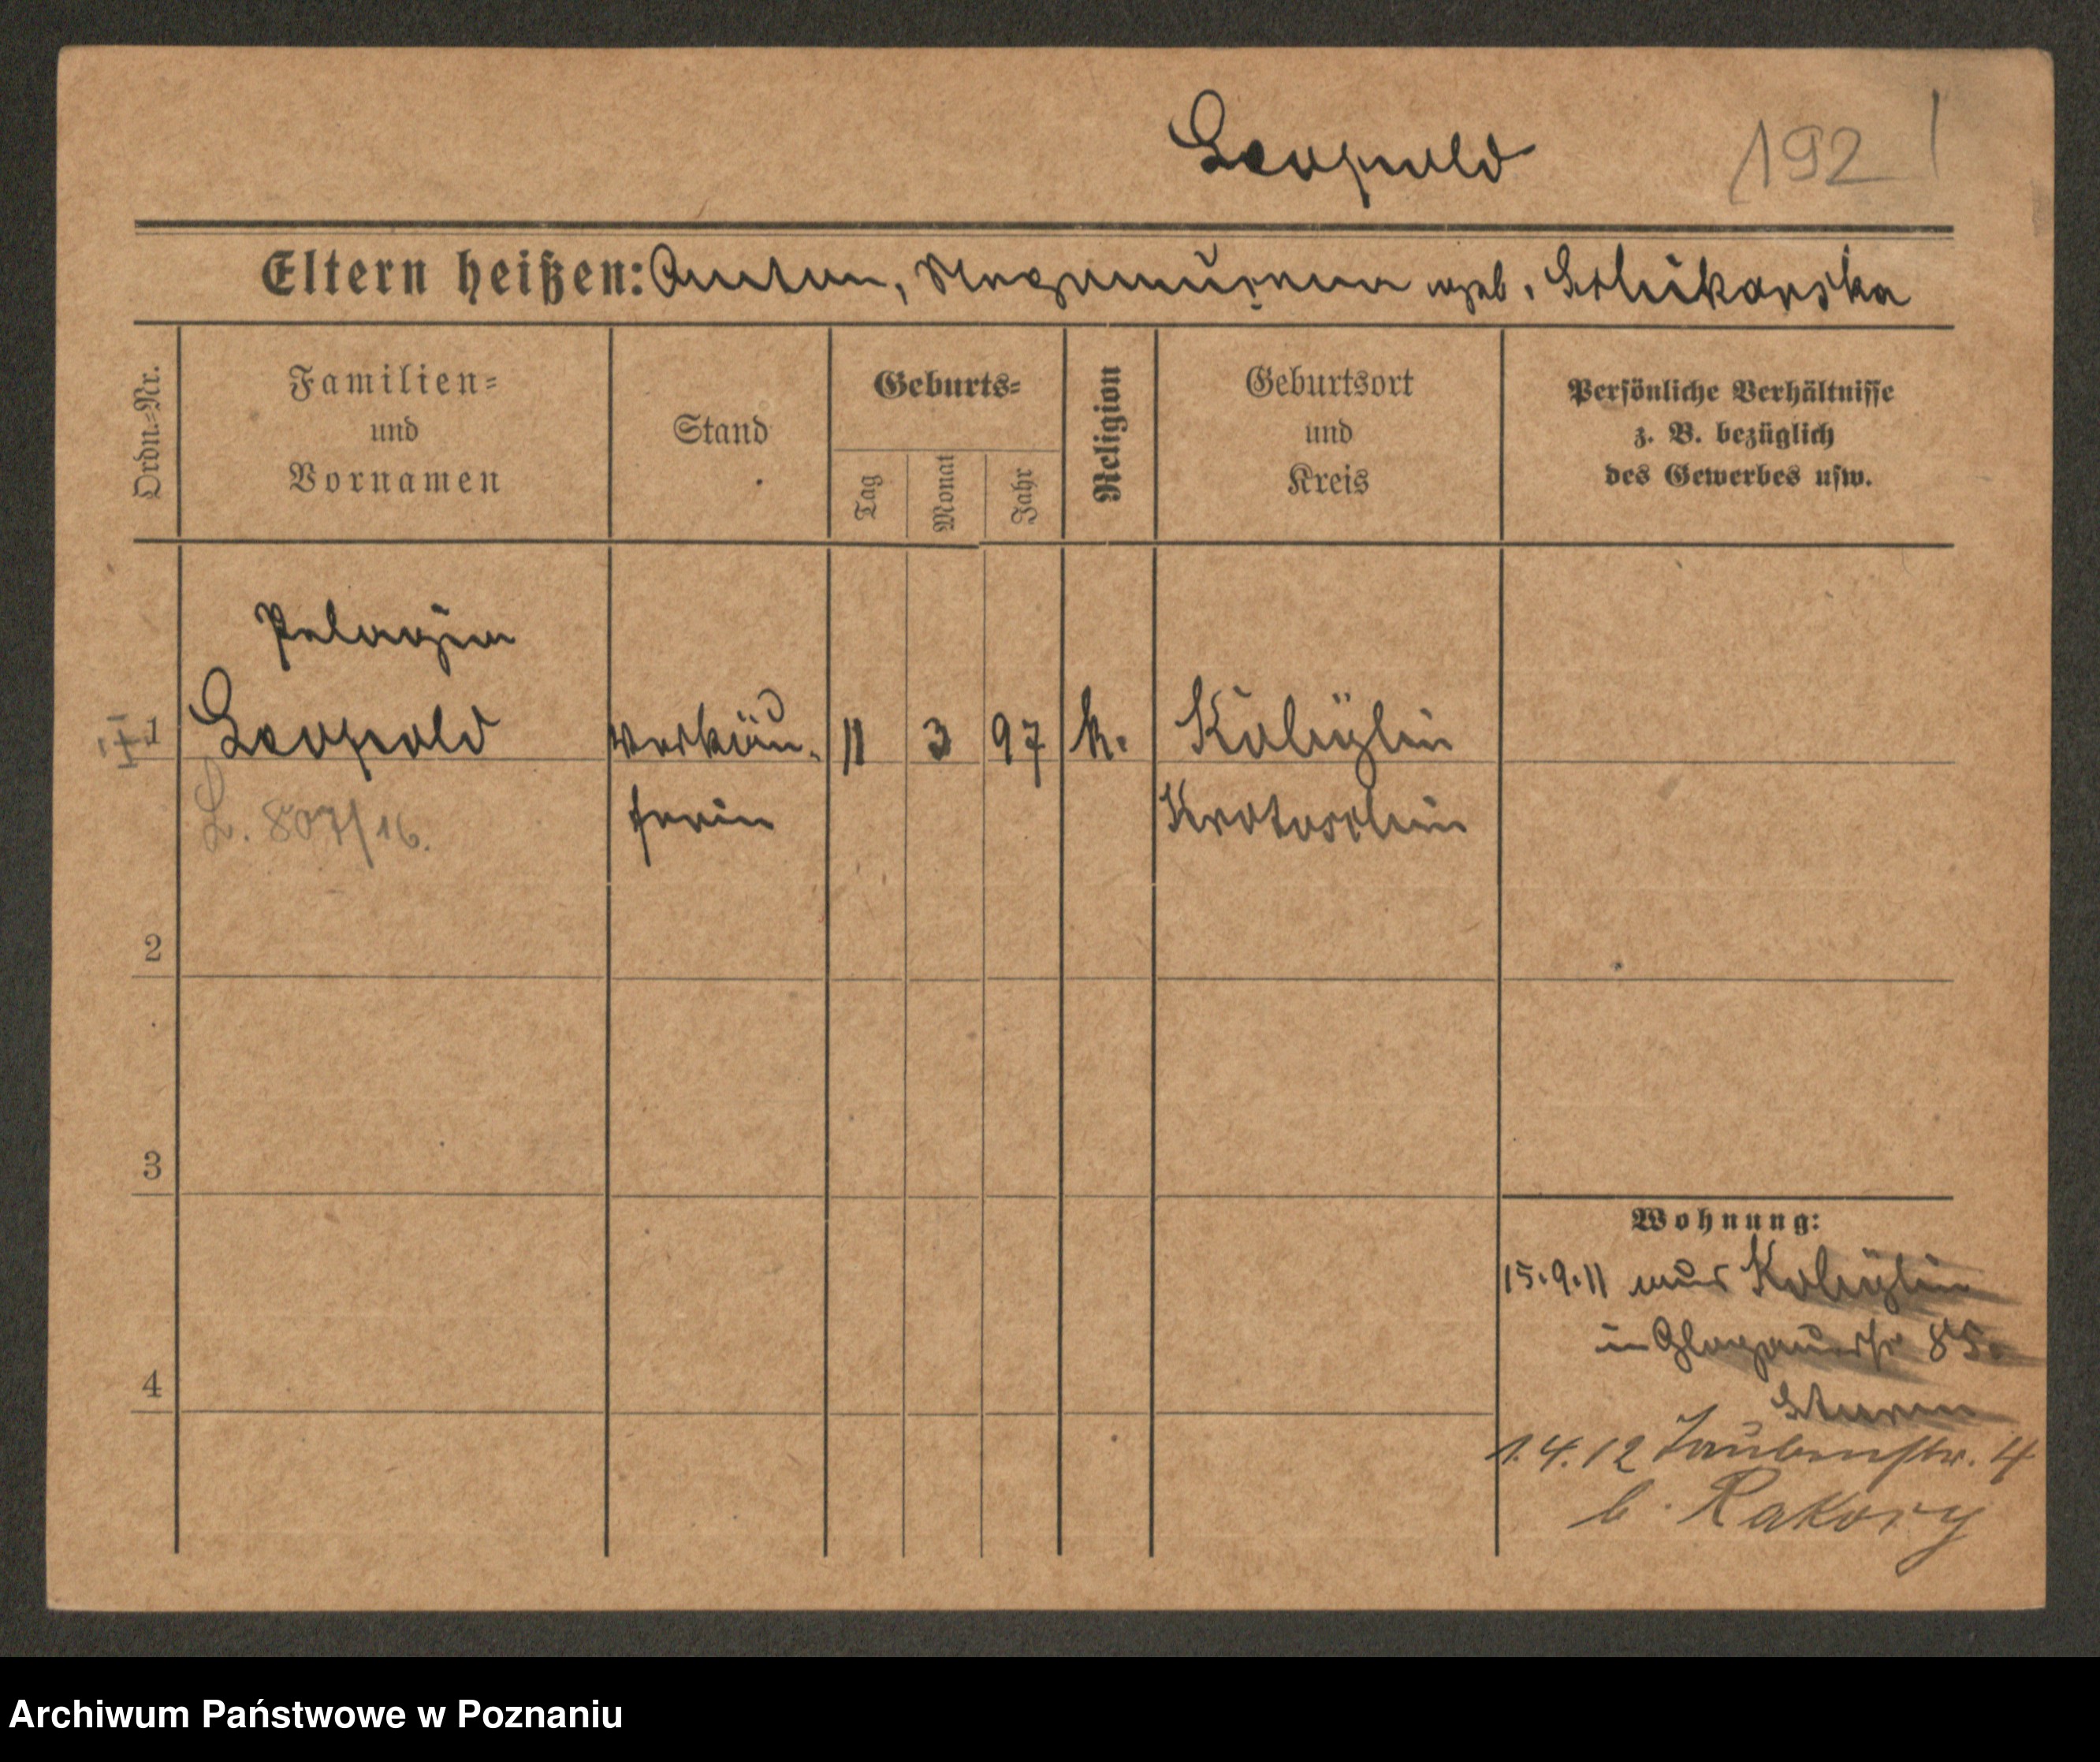 Leopold
192
Eltern heißen: Anton, Nepomucena geb.
Ordn.-Nr.
Familien-
und
Vornamen
Stand
Geburts-
Tag
Monat
Jahr
Religion
Geburtsort
und
Kreis
Persönliche Verhältnisse
z. B. bezüglich
des Gewerbes usw.
Pelagia
1 Leopold Verkäu- 11 3 97 k. Kobylin
L. 807/16. ferin Krotoschin
2
3
4
Wohnung:
15.9.11 aus Kobylin
in Glogauerstr 85.
Sturm
1.4.12 Taubenstr. 4
b. Rakocy
Archiwum Państwowe w Poznaniu